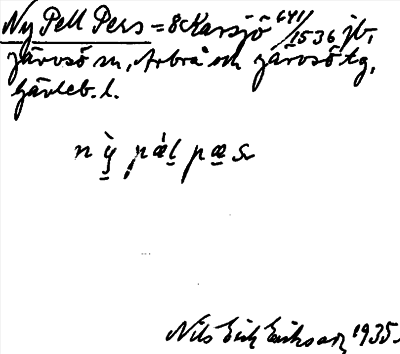 Ny Pell Pers = 8 Karsjö 641/1536 jb,
Järvsö sn, Arbrå och Järvsö tg,
Gävleb. l.
nỳ pǽl pæs
Nils Erik Eriksson 1935.